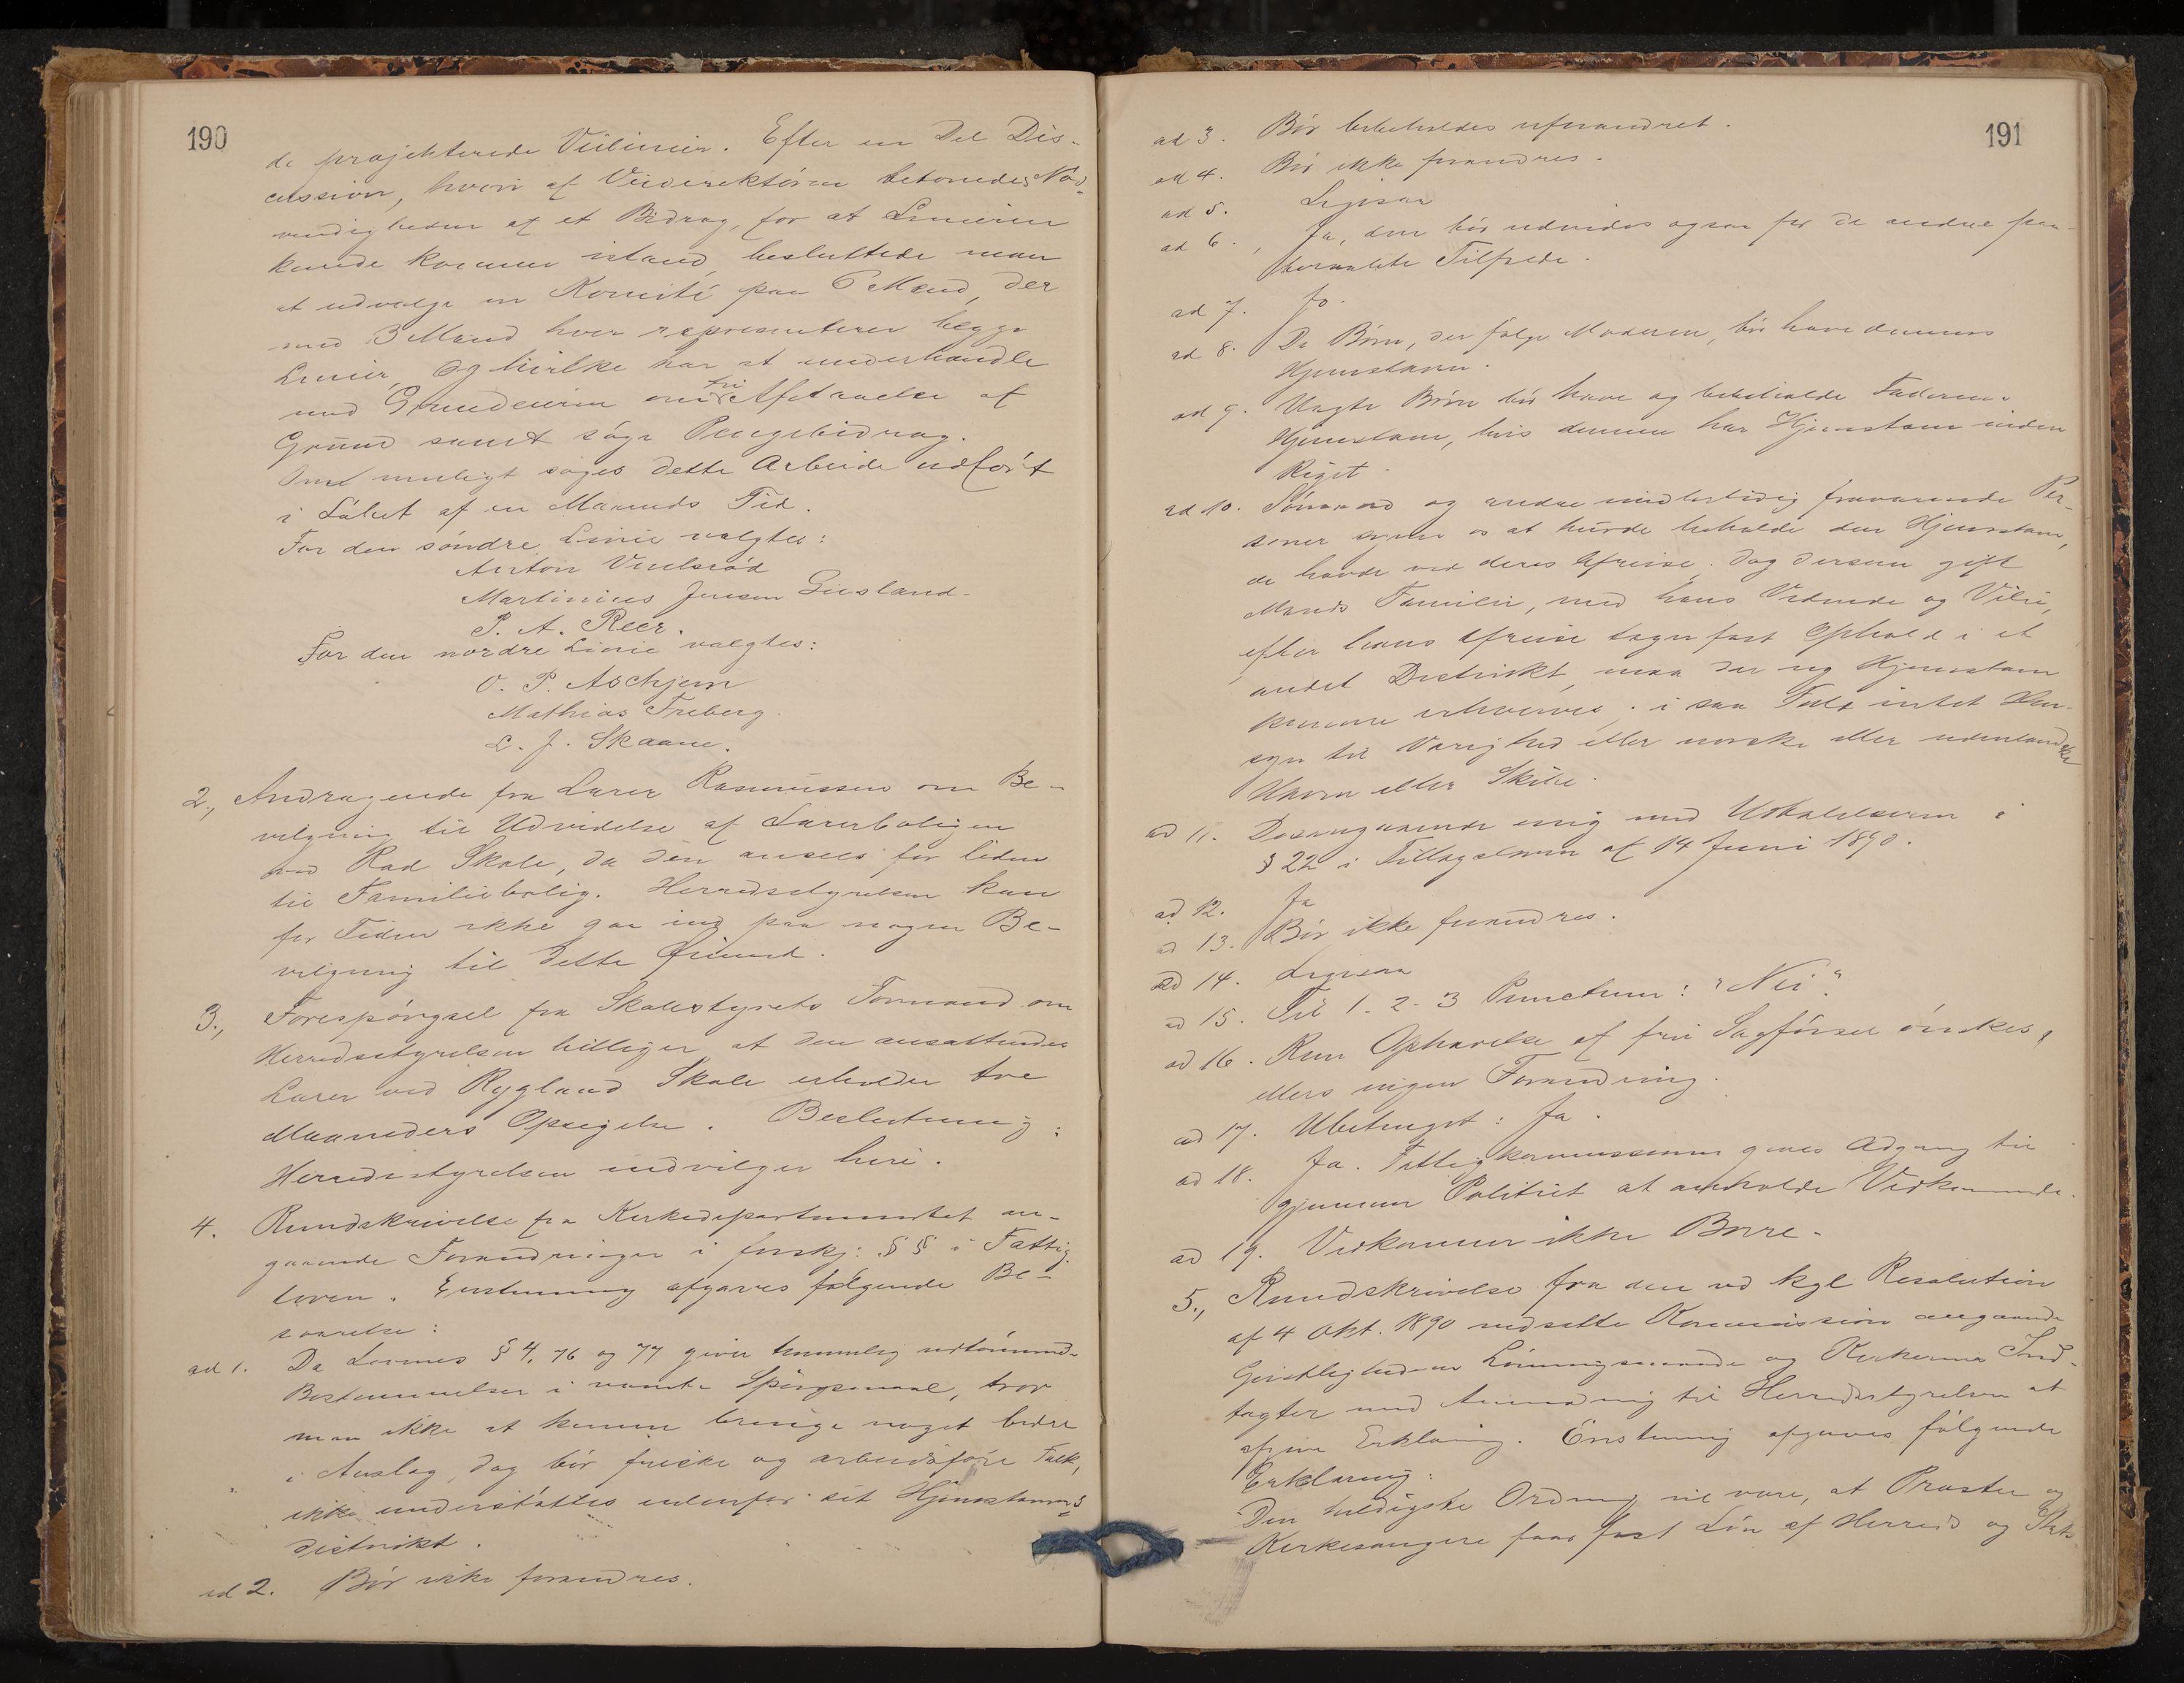 190
de projekterede Veilinier. Efter en Del Dis-
cussion, hvori af Veidirektören betonedes Nöd-
vendigheden af et Bidrag, for at Linierne
kunde komme istand, besluttede man
at udvælge en Komité paa 6 Mænd, der
med 3 Mand hver representerer begge
Linier, og hvilke har at underhandle
med Grundeierne om fri Afstaaelse af
Grund samt söge Pengebidrag.
Om muligt söges dette Arbeide udfört
i Löbet af en Maaneds Tid.
For den söndre Linie valgtes:
Anton Virelsröd
Martinius Jensen Giisland.
P. A. Reer.
For den nordre Linie valgtes:
O. P. Aschjem
Mathias Freberg.
L. J. Skaane.
2., Andragende fra Lærer Rasmussen om Be-
vilgning til Udvidelse af Lærerboligen
ved Rød Skole, da den ansees for liden
til Familiebolig. Herredsstyrelsen kan
for Tiden ikke gaa ind paa nogen Be-
vilgning til dette Öiemed.
3., Forespörgsel fra Skolestyrets Formand om
Herredsstyrelsen billiger at den ansættendes
Lærer ved Rygland Skole erholder tre
Maaneders Opsigelse. Beslutning:
Herredsstyrelsen indvilger heri.
4. Rundskrivelse fra Kirkedepartementet an-
gaaende Forandringer i forskj: §§ i Fattig-
loven. Enstemmig afgaves følgende Be-
svarelse:
ad 1. Da Lovens § 4, 76 og 77 giver temmelig udtömmende
Bestemmelser i nævnte Spörgsmaal, tror
man ikke at kunne bringe noget bedre
i Anslag, dog bör friske og arbeidsföre Folk,
ikke understöttes udenfor sit Hjemstavns-
distrikt.
ad 2. Bör ikke forandres.
191
ad 3. Bör bibeholdes uforandret.
ad 4. Bör ikke forandres.
ad 5. Ligesaa
ad 6., Ja, den bör udvides ogsaa for de andre paa-
beraabte Tilfælde.
ad 7. Jo.
ad 8. De Börn, der følge Moderen, bör have dennes
Hjemstavn.
ad 9. Uægte Börn bör have og bibeholde Faderens
Hjemstavn, hvis denne har Hjemstavn inden
Riget.
ad 10. Sömænd og andre midlertidig fraværende Per-
soner synes os at burde beholde den Hjemstavn,
de havde ved deres Afreise. Dog dersom gift
Mands Familie, med hans Vidende og Vilie,
efter hans Afreise tager fast Ophold i et
andet Distrikt, maa der ny Hjemstavn
kunne erhverves, i saa Fald intet Hen-
syn til Varighed eller norske eller udenlandske
Havn eller Skibe.
ad 11. Desangaaende enig med Udtalelserne i
§ 22 i Tillægsloven af 14 Juni 1890.
ad 12. Ja
ad 13. Bör ikke forandres.
ad 14. Ligesaa
ad 15. Til 1. 2. 3 Punctum: "Nei".
ad 16. Kun Ophævelse af fri Sagförsel önskes,
ellers ingen Forandring.
ad 17. Ubetinget: Ja.
ad 18. Ja. Fattigkommissionen gives Adgang til
gjennem Politiet at anholde Vedkommende.
ad 19. Vedkommer ikke Borre.
5., Rundskrivelse fra den ved kgl Resolution
af 4 Okt. 1890 nedsatte Kommission angaaende
Geistlighedens Lönningsmaade og Kirkernes Ind-
tægter med Anmodning til Herredsstyrelsen at
afgive Erklæring. Enstemmig afgaves fölgende
Erklæring:
Den heldigste Ordning vil være, at Præster og
Kirkesangere faar fast Lön af Herred og Stat